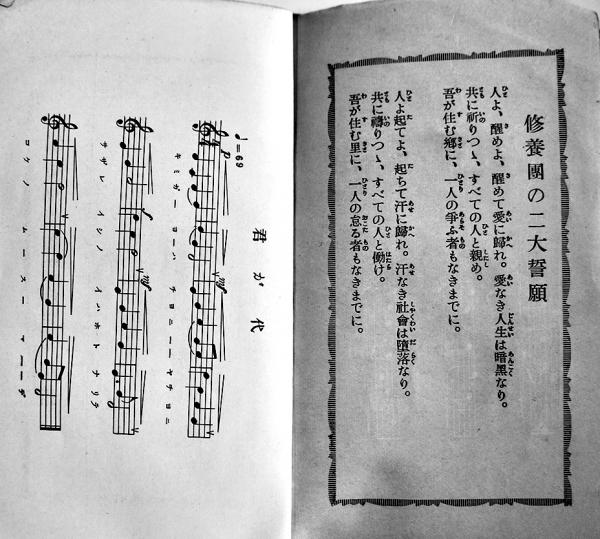 修養團の二大誓願
人よ、醒めよ、醒めて愛に歸れ。愛なき人生は暗黑なり。
共に祈りつゝ、すべての人と親め。
吾が住む鄕に、一人の爭ふ者もなきまでに。
人よ起てよ、起ちて汗に歸れ。汗なき社會は墮落なり。
共に禱りつゝ、すべての人と働け。
吾が住む里に、一人の怠る者もなきまでに。
君が代
♩=69
キミガーヨーハ チヨニーーヤチヨニ
サザレ イシノ イハホト ナリテ
コケノ ムースーマーーデ